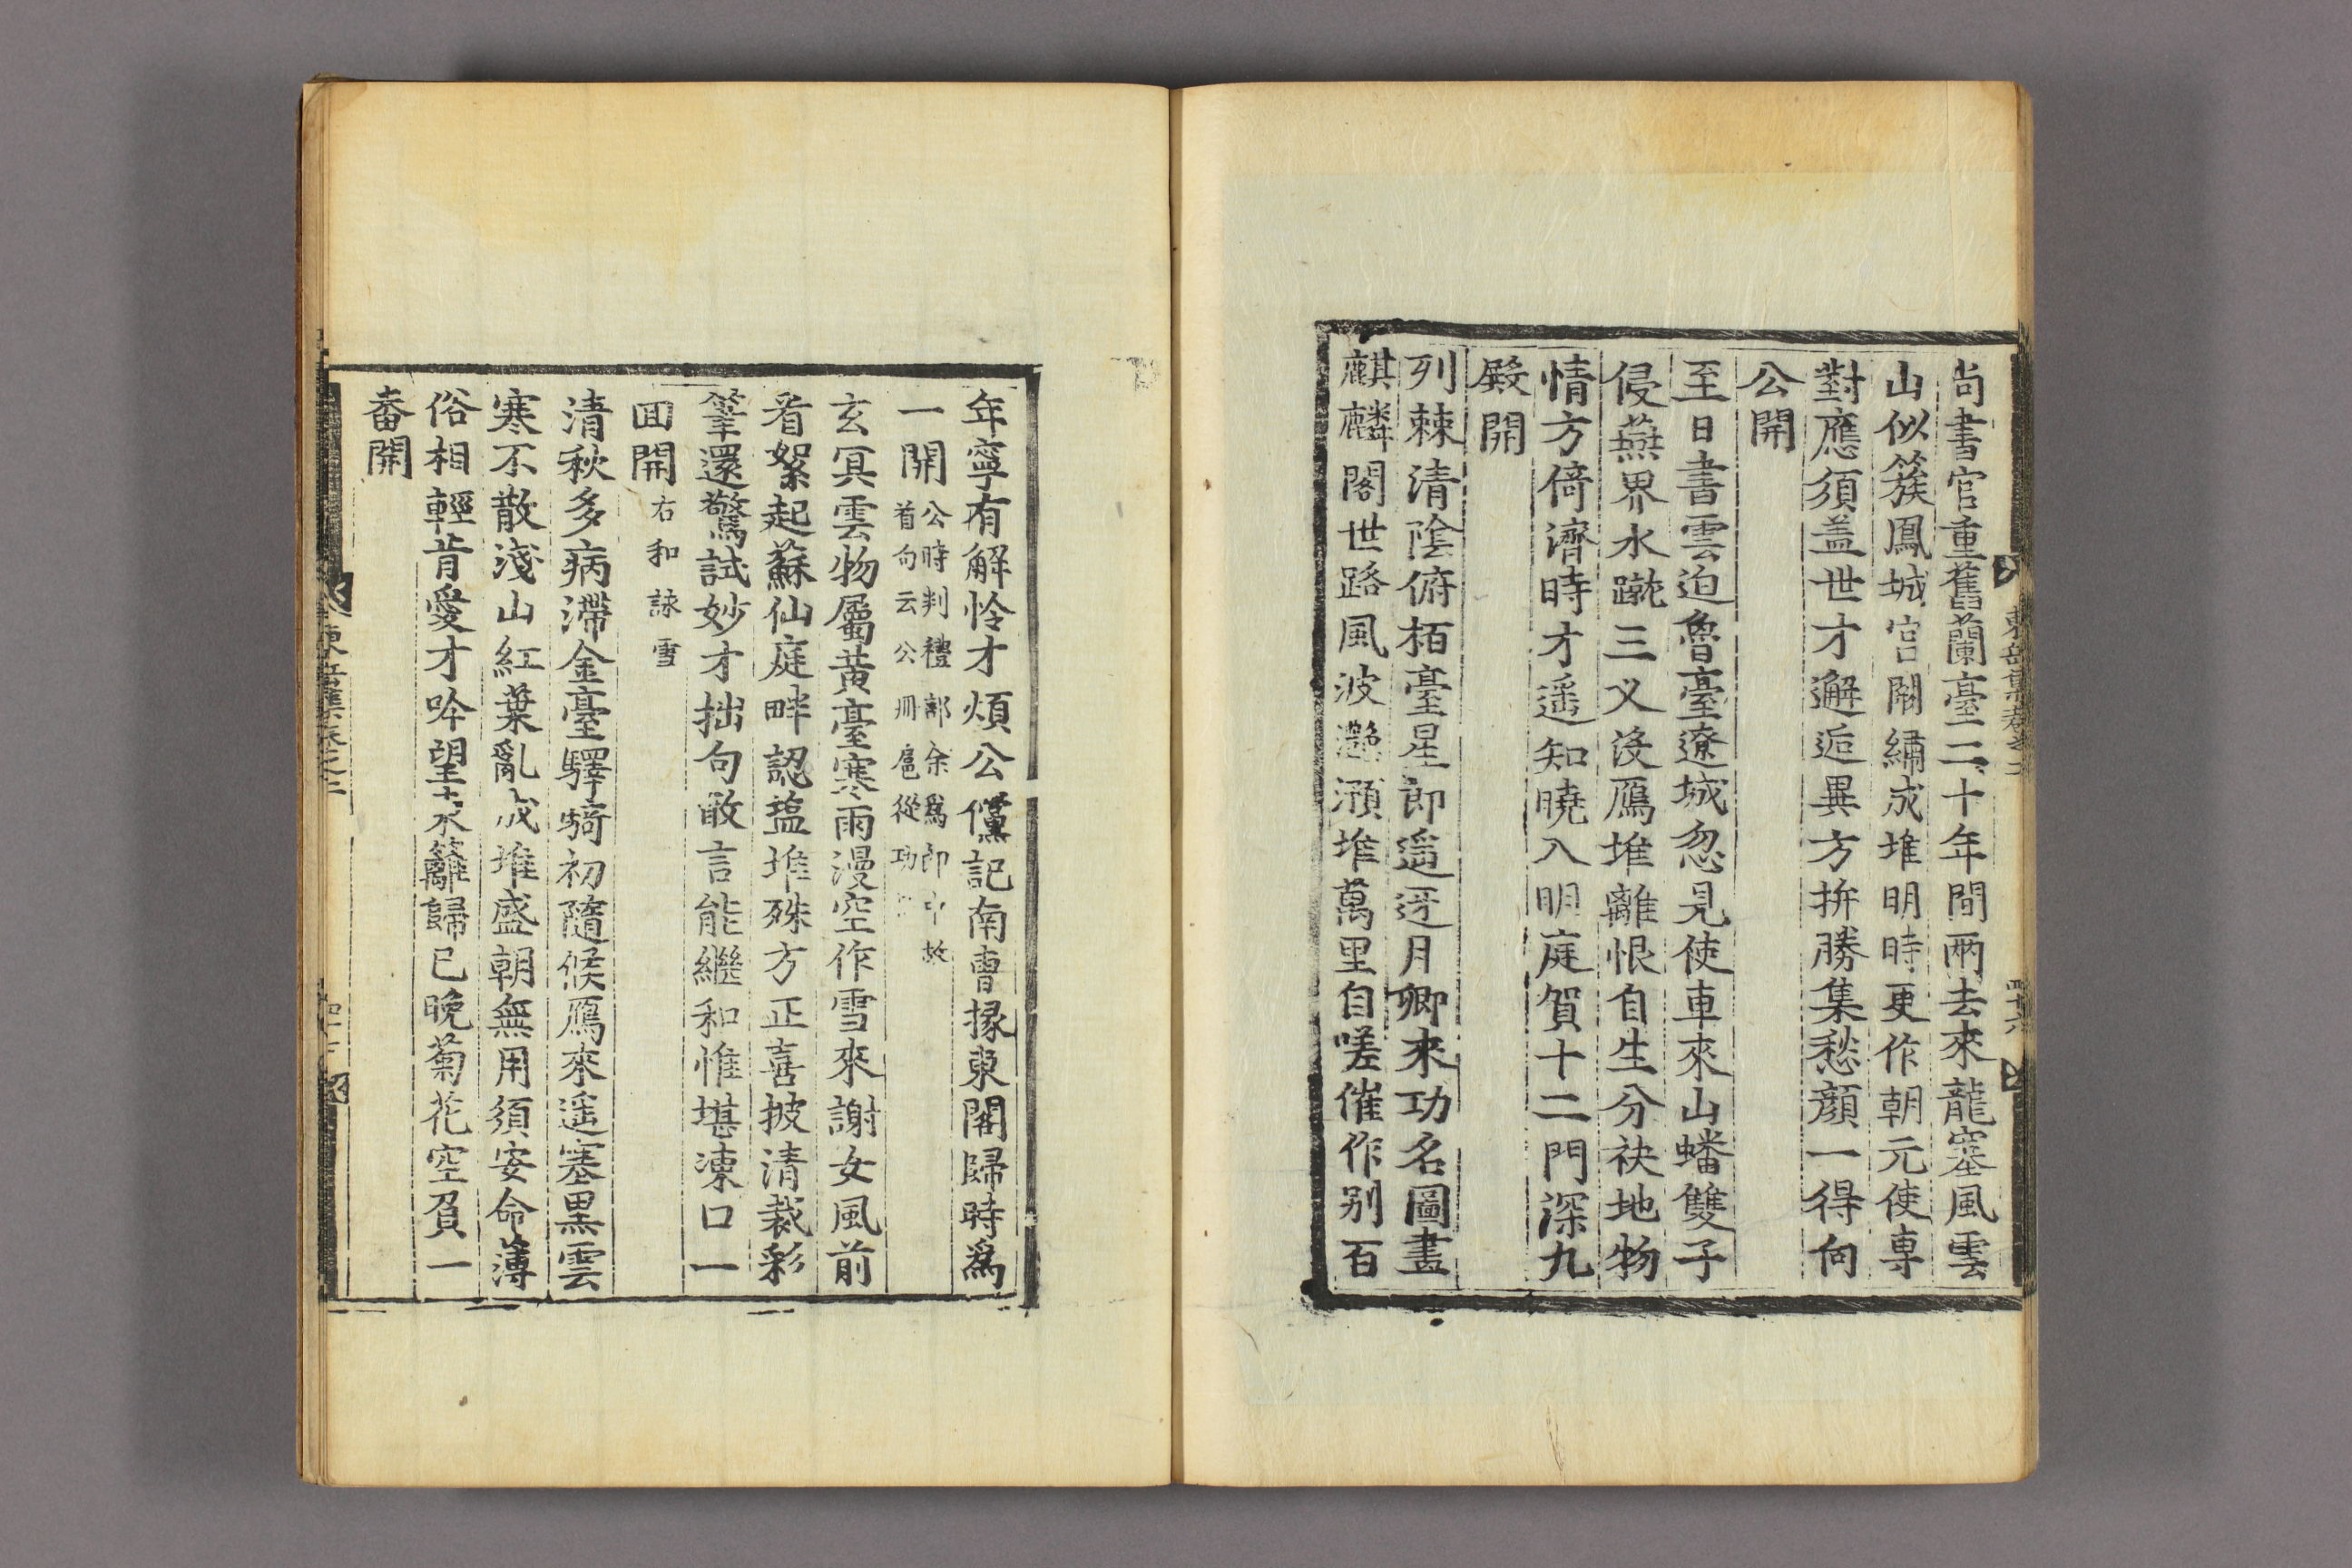 尚書官重舊蘭臺二十年間兩去來龍塞風雲
山似簇鳳城宮闕繡成堆明時更作朝元使專
對應須盖世才邂逅異方拚勝集愁顔一得向
公開
至日書雲迫魯臺遼城忽見使車來山蟠雙子
侵燕界水蹴三义沒鴈堆離恨自生分袂地物
情方倚濟時才遥知曉入明庭賀十二門深九
殿開
列棘清陰俯栢臺星郎遥迓月卿来功名圖畫
麒麟閣世路風波灔澦堆萬里自嗟催作别百
年寧有解怜才煩公儻記南曹掾東閣歸時爲
一開
公時判禮部余爲郎中故
首句云公冊扈從功
玄冥雲物屬黄臺寒雨漫空作雪來謝女風前
看絮起蘇仙庭畔認塩堆殊方正喜披清裁彩
筆還驚試妙才拙句敢言能繼和惟堪凍口一
囬開
右和詠雪
清秋多病滯金臺驛騎初隨候鴈來遥塞黒雲
寒不散淺山紅葉亂成堆盛朝無用須安命薄
俗相輕肯愛才吟望東籬歸已晚菊花空負一
番開
東岳集卷之二